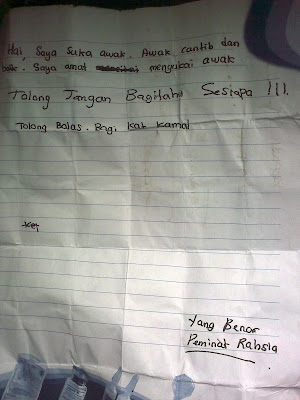 Hai, Saya Suka awak. Awak cantik dan
baik. Saya amat mengukai awak
Tolong Jangan Bagitahu Sesiapa !!!.
Tolong Balas. Bagi kat kamal
Yang Benar
Peminat Rahsia